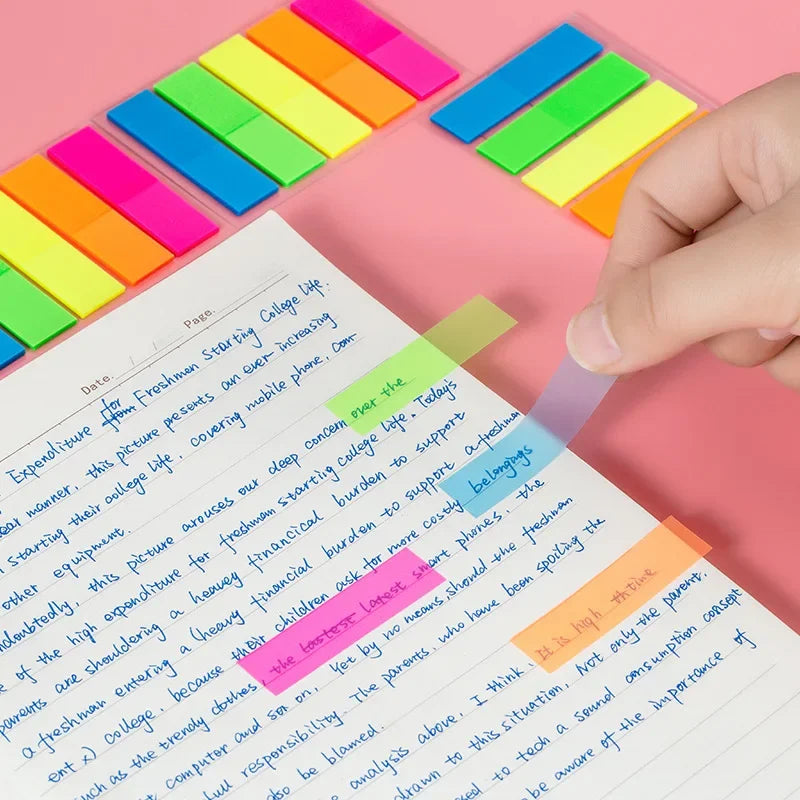 Date. / / Page.
Expenditure for from Freshmen Starting College life.
ear manner, this picture presents an ever increasing
n starting their college life, covering mobile phone, com-
other equipment.
ndoubtedly, this picture arouses our deep concern over the
e of the high expenditure for freshmen starting college life. Today's
parents are shouldering a heavy financical burden to support
a freshman entering a (heavy financial burden to support a freshman
ent x) college, because their children ask for more costly belongings
such as the trendy clothes, the lastest latest smart phones, the
t computer and son on, Yet by no means should the freshman
full responsibility. The parents, who have been spoiling the
lso be blamed.
analysis above, I think, It is high thtime
drawn to this situation, Not only the parent,
sed to tech a sound consumption consept
be aware of the importance of